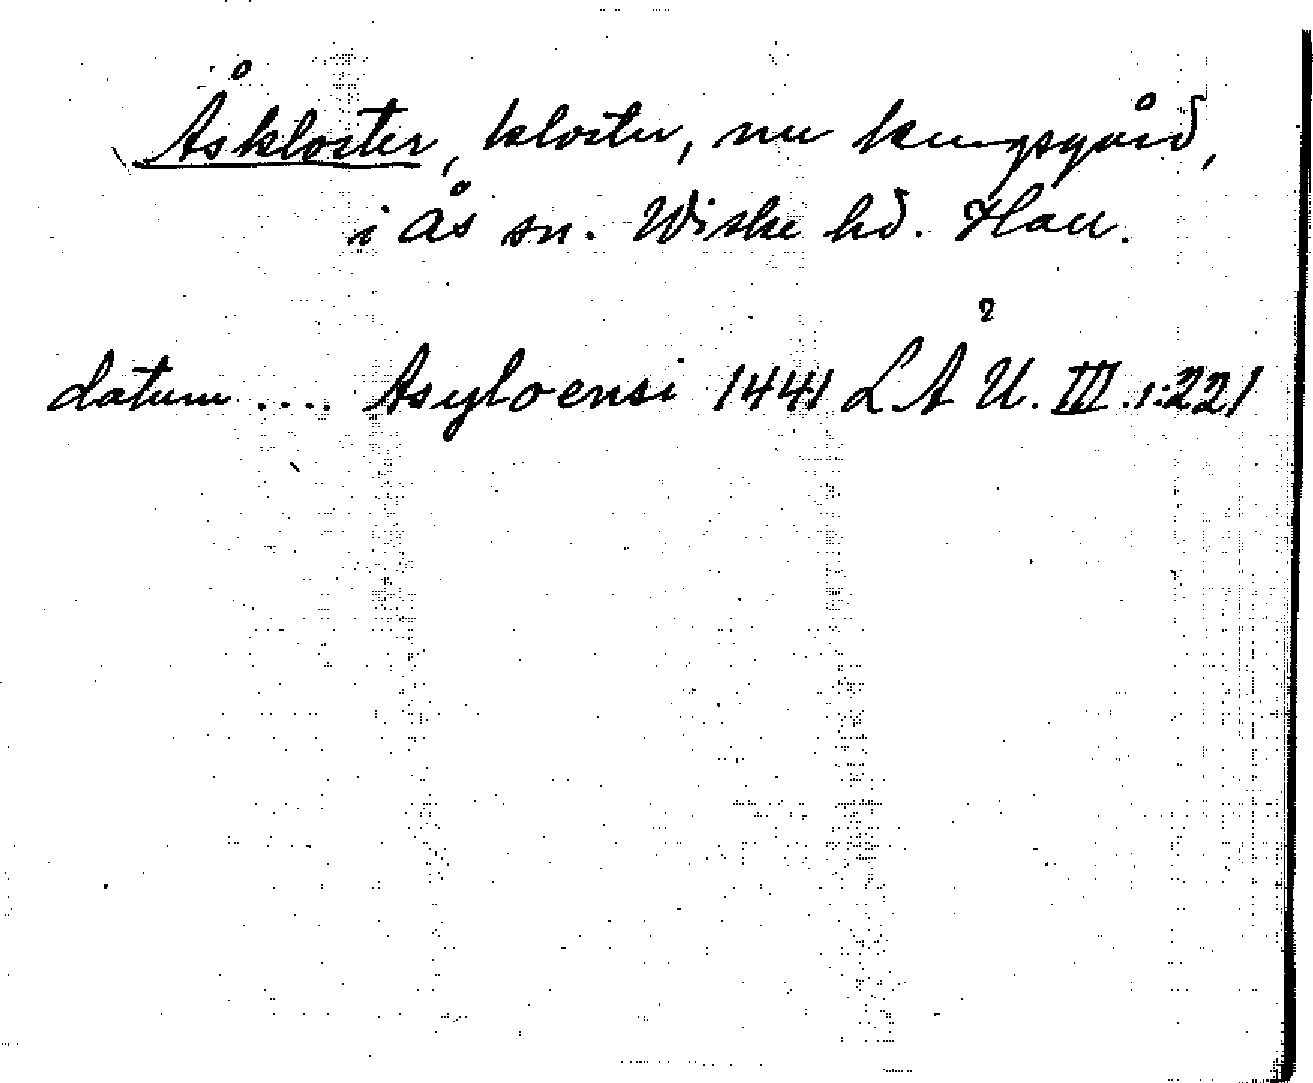 Åskloster, kloster, nu kungsgård,
i Ås sn. Wiske hd. Hall.
datum .... Asyloensi 1441 LÅU. III.1:221